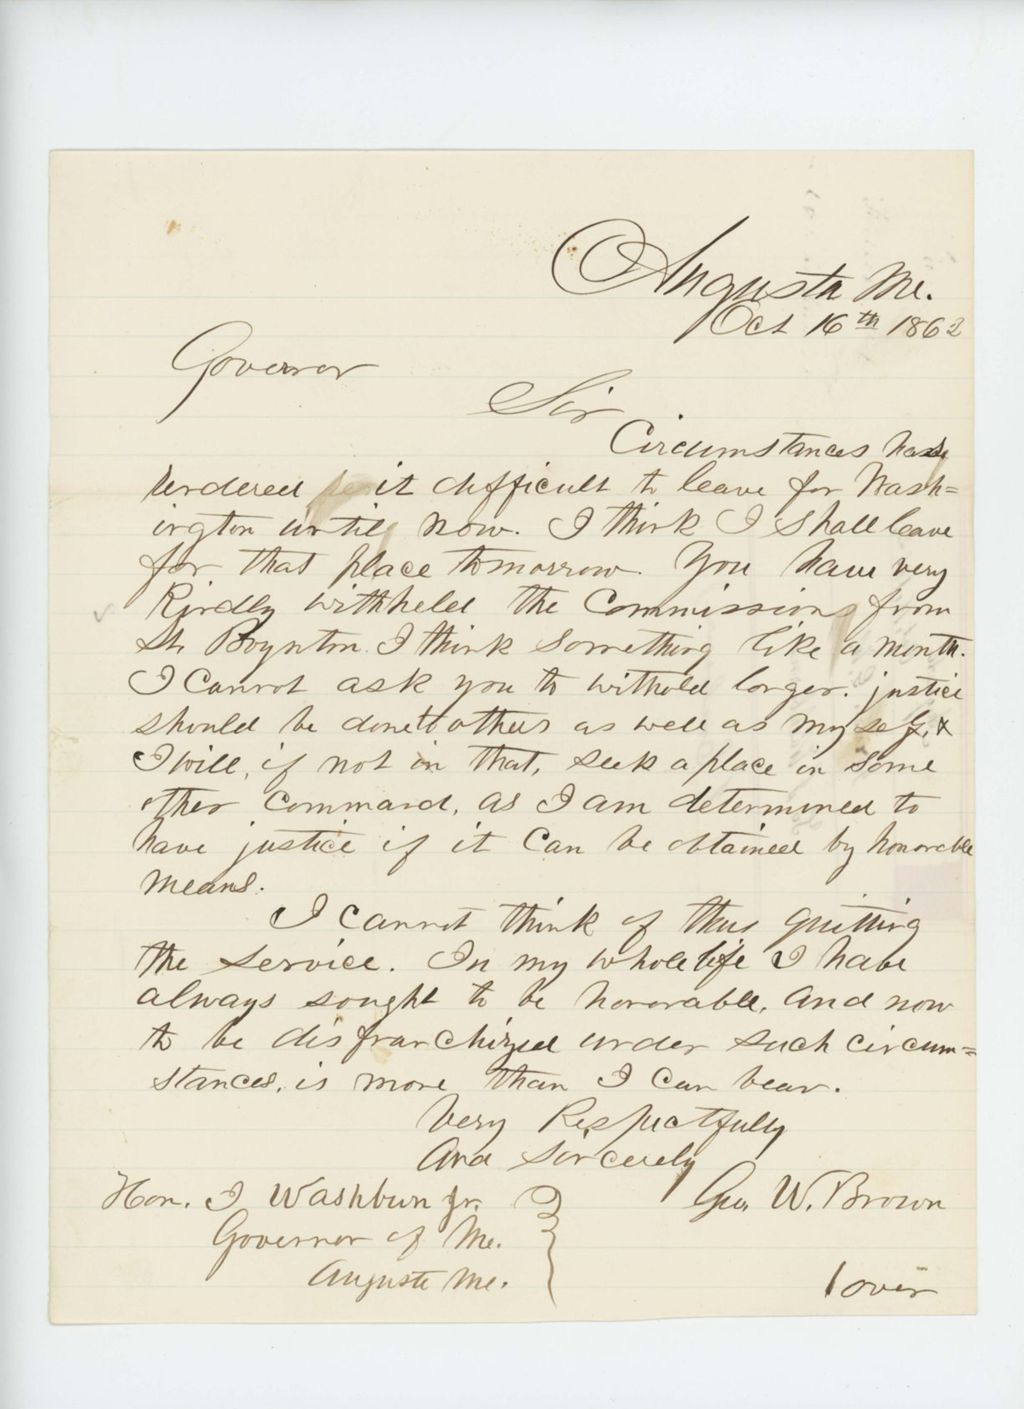 Augusta Me.
Oct 16th 1862
Governor
Sir
Circumstances have
rendered it difficult to leave for Wash=
ington until now. I think I shall leave
for that place tomorrow. You have very
Kindly withheld the Commission from
Lt Boynton. I think something like a month.
I Cannot ask you to withold longer. justice
should be done to others as well as myself, &
I will, if not in that, seek a place in some
other Command, as I am determined to
have justice if it Can be obtained by honorable
means.
I cannot think of thus quitting
the service. In my whole life I have
always sought to be honorable, and now
to be disfranchized under such circum=
stances, is more than I can bear.
Very Respectfully
And Sincerely
Geo. W. Brown
Hon. I Washburn jr.
Governor of Me.
Augusta Me.
over